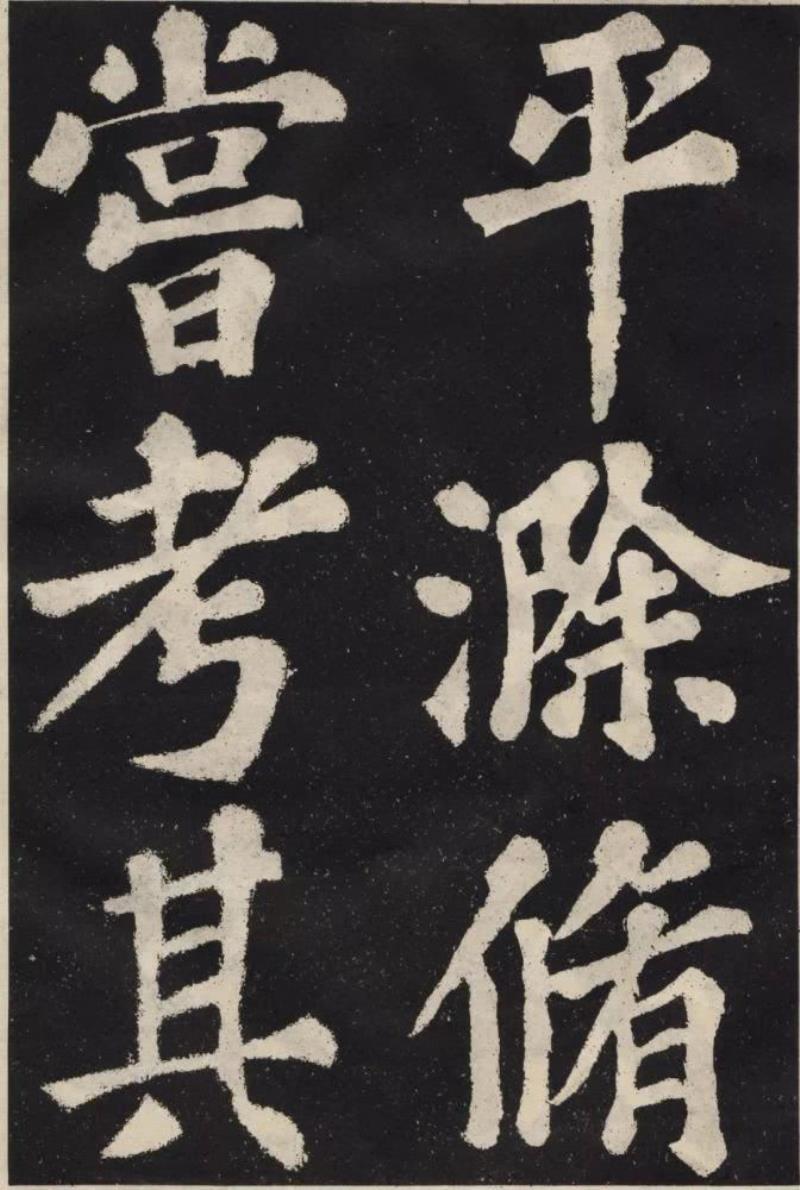 平滁脩
嘗考其